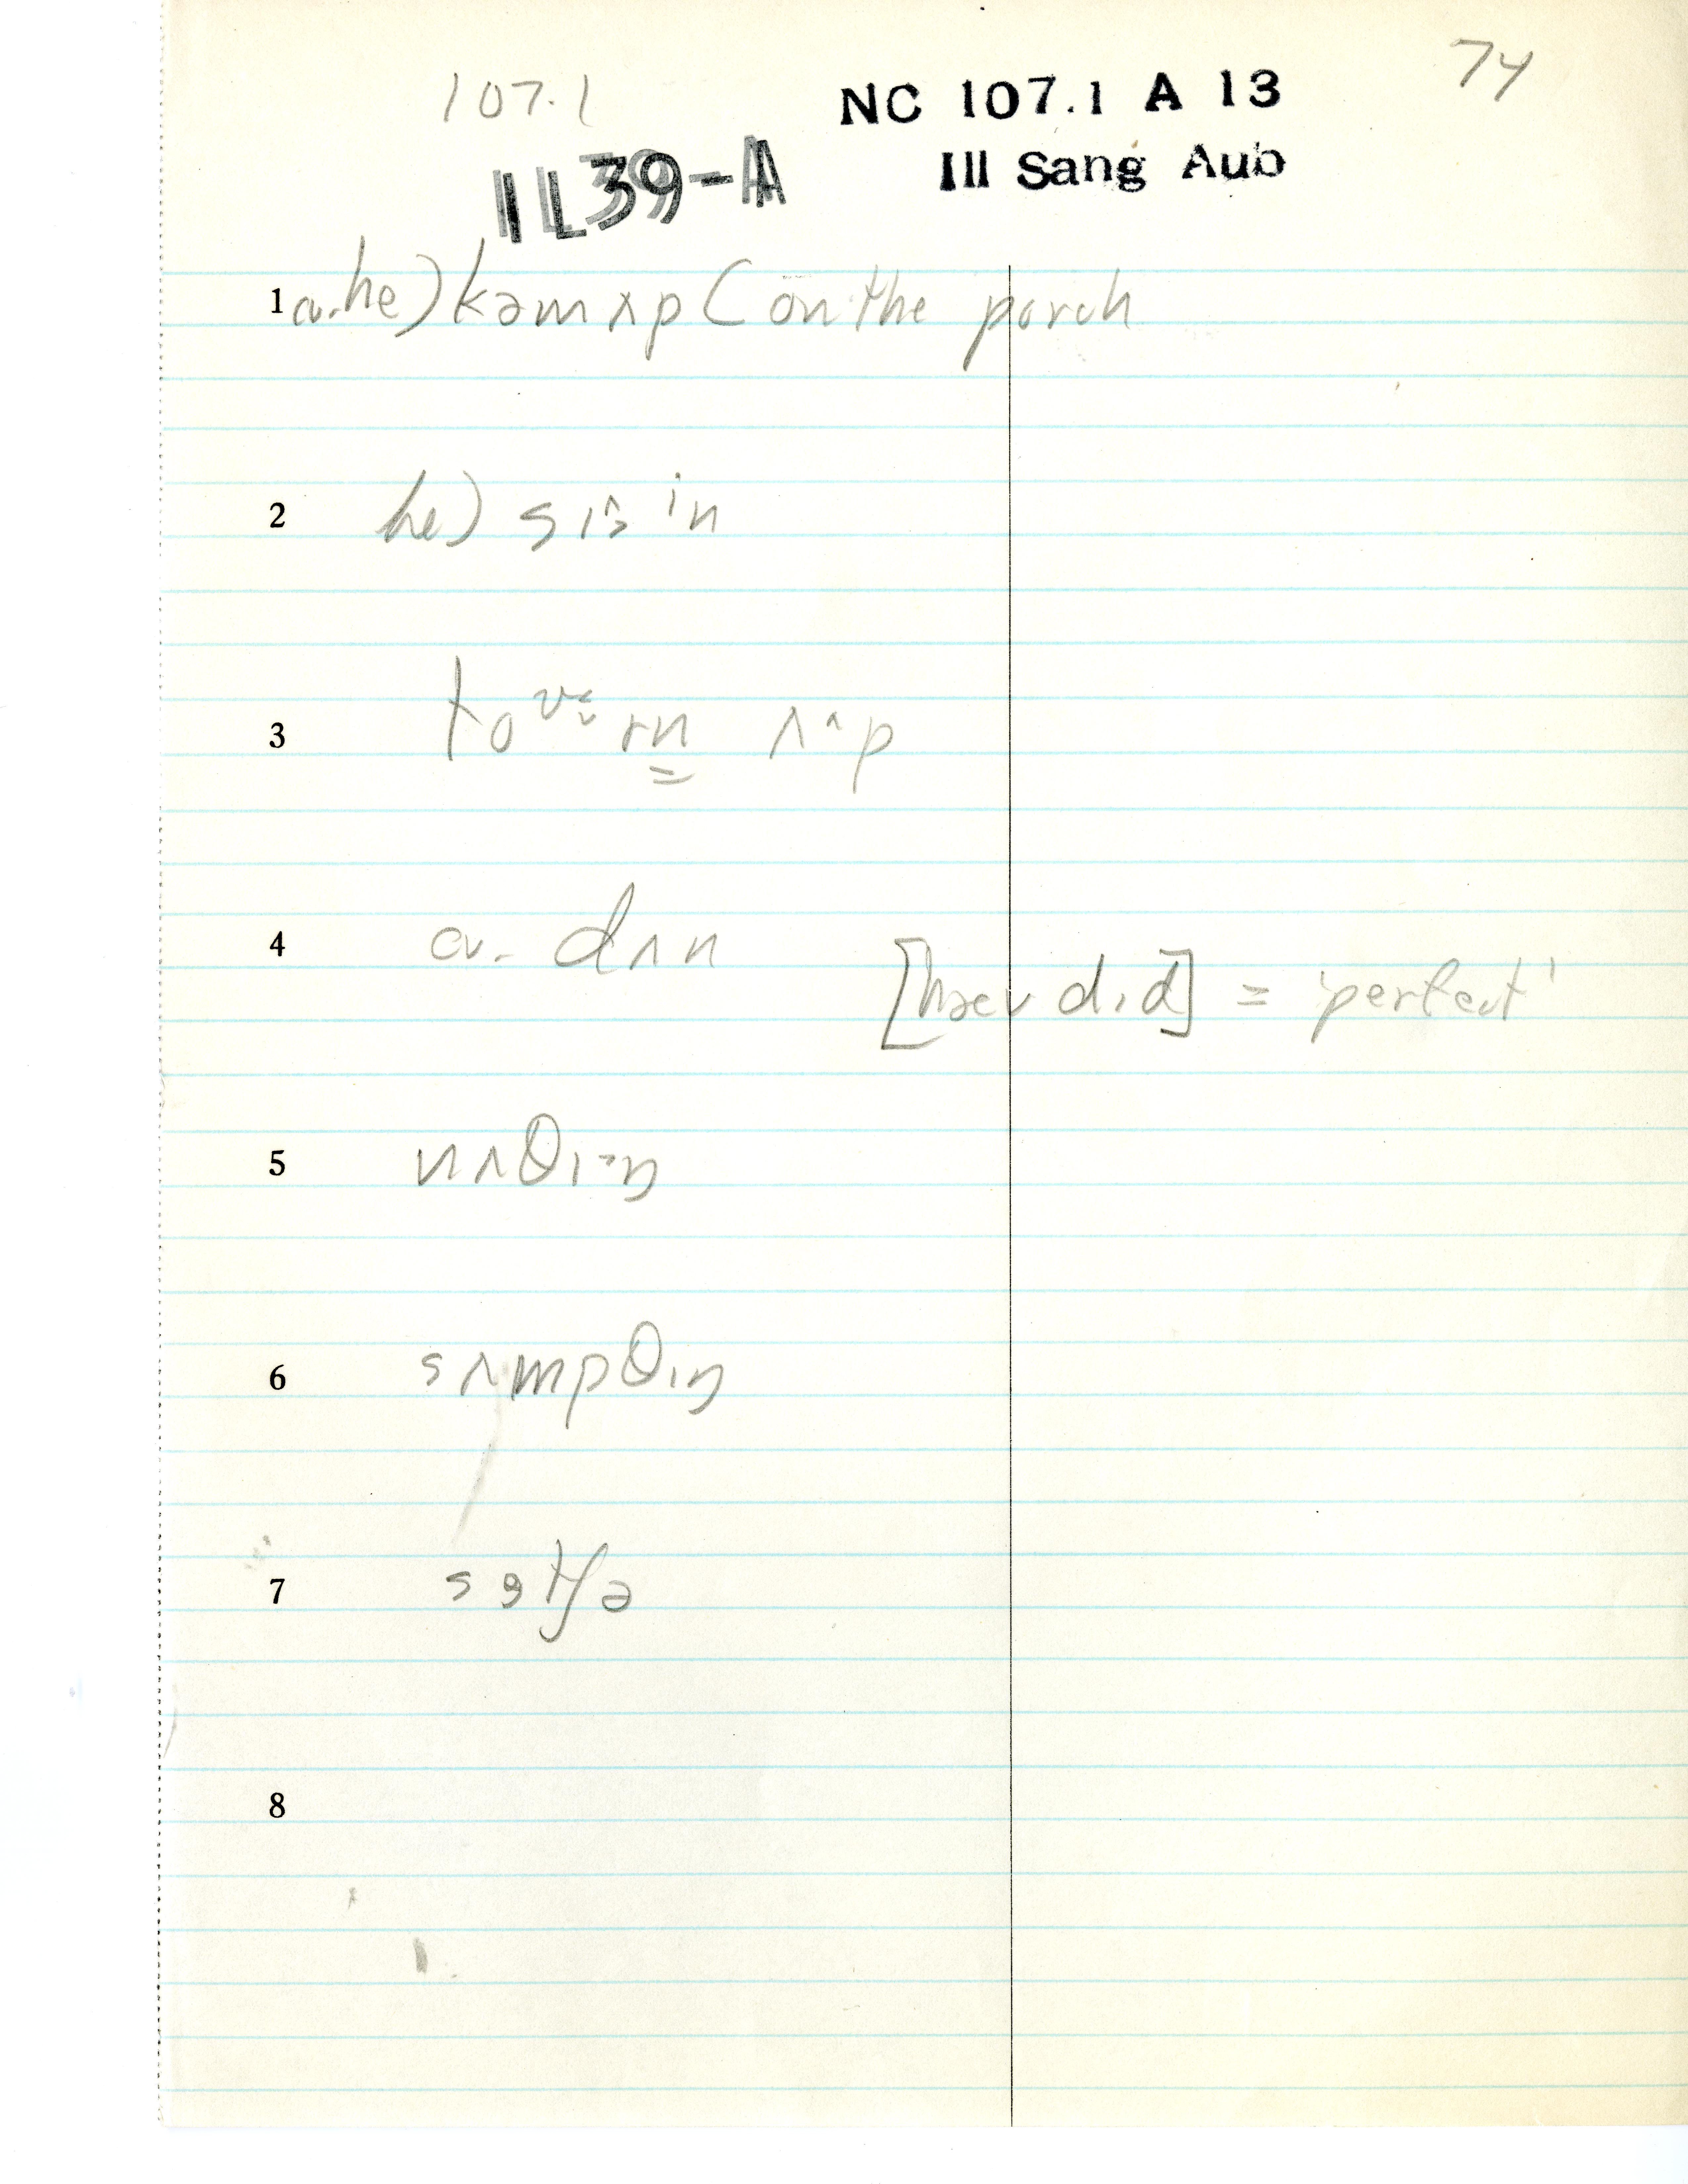 74
107.1 NC 107.1 A 13
IL39-A Ill Sang Aub
1 a. he) kəmʌp (on the porch
2 he) sɪˆs ɪn
3
4 a. dʌn
[hæv dɪd] = 'perfect'
5 nʌθɪ·ŋ
6 sʌmpθɪŋ
7 sɘtʃə
8